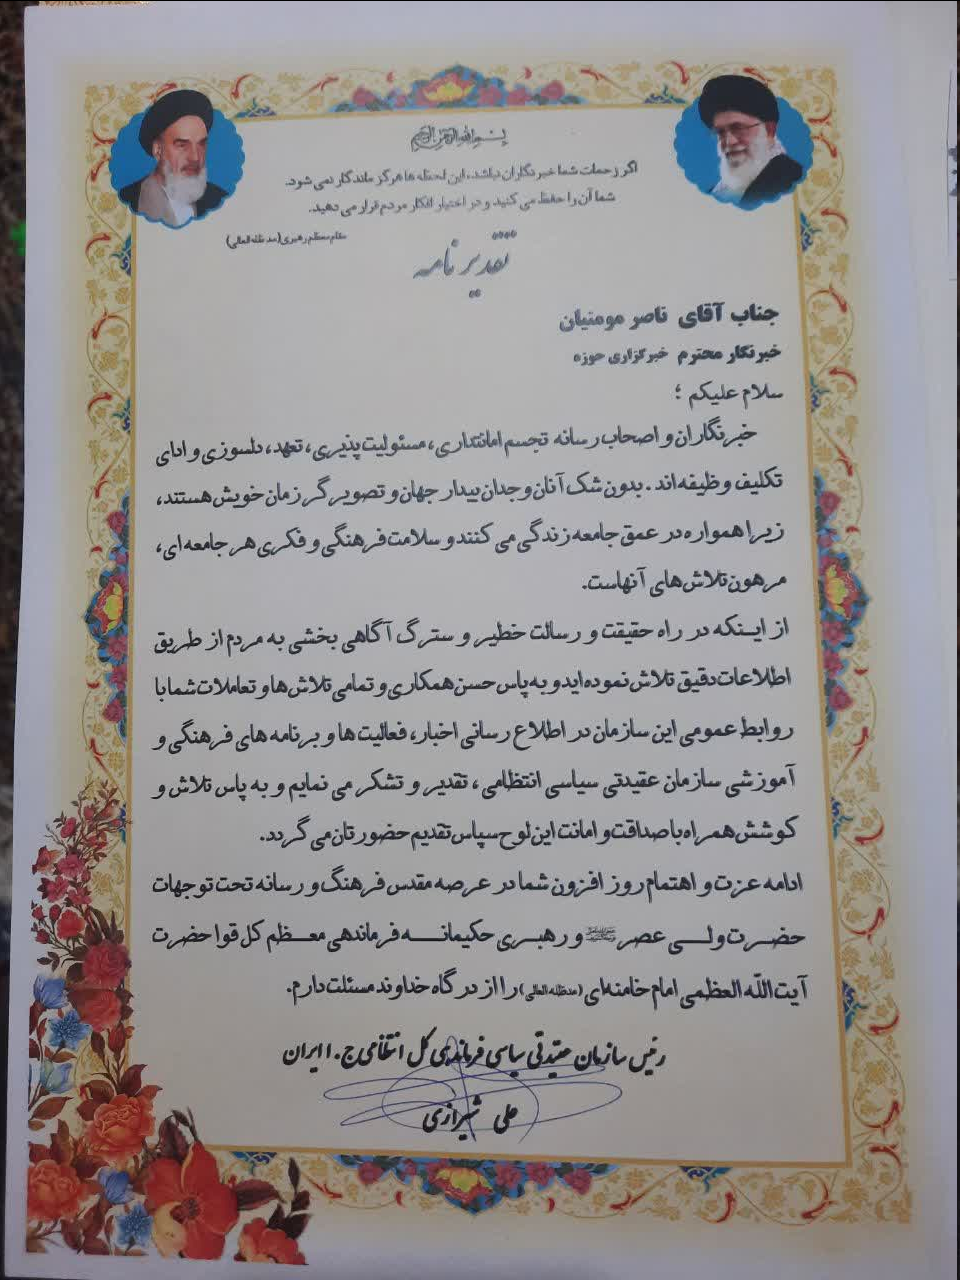 بسم الله الرحمن الرحیم
اگر زحمات شما خبرنگاران نباشد، این لحظه ها هرگز ماندگار نمی شود.
شما آن را حفظ می کنید و در اختیار افکار مردم قرار می دهید.
مقام معظم رهبری (مدظله العالی)
تقدیرنامه
جناب آقای ناصر مومنیان
خبرنگار محترم خبرگزاری حوزه
سلام علیکم ؛
خبرنگاران و اصحاب رسانه تجسم امانتداری، مسئولیت پذیری، تعهد، دلسوزی و ادای
تکلیف وظیفه اند . بدون شک آنان وجدان بیدار جهان و تصویرگر زمان خویش هستند،
زیرا همواره در عمق جامعه زندگی می کنند و سلامت فرهنگی و فکری هر جامعه ای،
مرهون تلاش های آنهاست.
از اینکه در راه حقیقت و رسالت خطیر و سترگ آگاهی بخشی به مردم از طریق
اطلاعات دقیق تلاش نموده اید و به پاس حسن همکاری و تمامی تلاش ها و تعاملات شما با
روابط عمومی این سازمان در اطلاع رسانی اخبار، فعالیت ها و برنامه های فرهنگی و
آموزشی سازمان عقیدتی سیاسی انتظامی، تقدیر و تشکر می نمایم و به پاس تلاش و
کوشش همراه با صداقت و امانت این لوح سپاس تقدیم حضورتان می گردد.
ادامه عزت و اهتمام روز افزون شما در عرصه مقدس فرهنگ و رسانه تحت توجهات
حضرت ولی عصر و رهبری حکیمانه فرماندهی معظم کل قوا حضرت
آیت الله العظمی امام خامنه ای (مدظله العالی) را از درگاه خداوند مسئلت دارم.
رئیس سازمان عقیدتی سیاسی فرماندهی کل انتظامی ج.ا.ایران
علی شیرازی